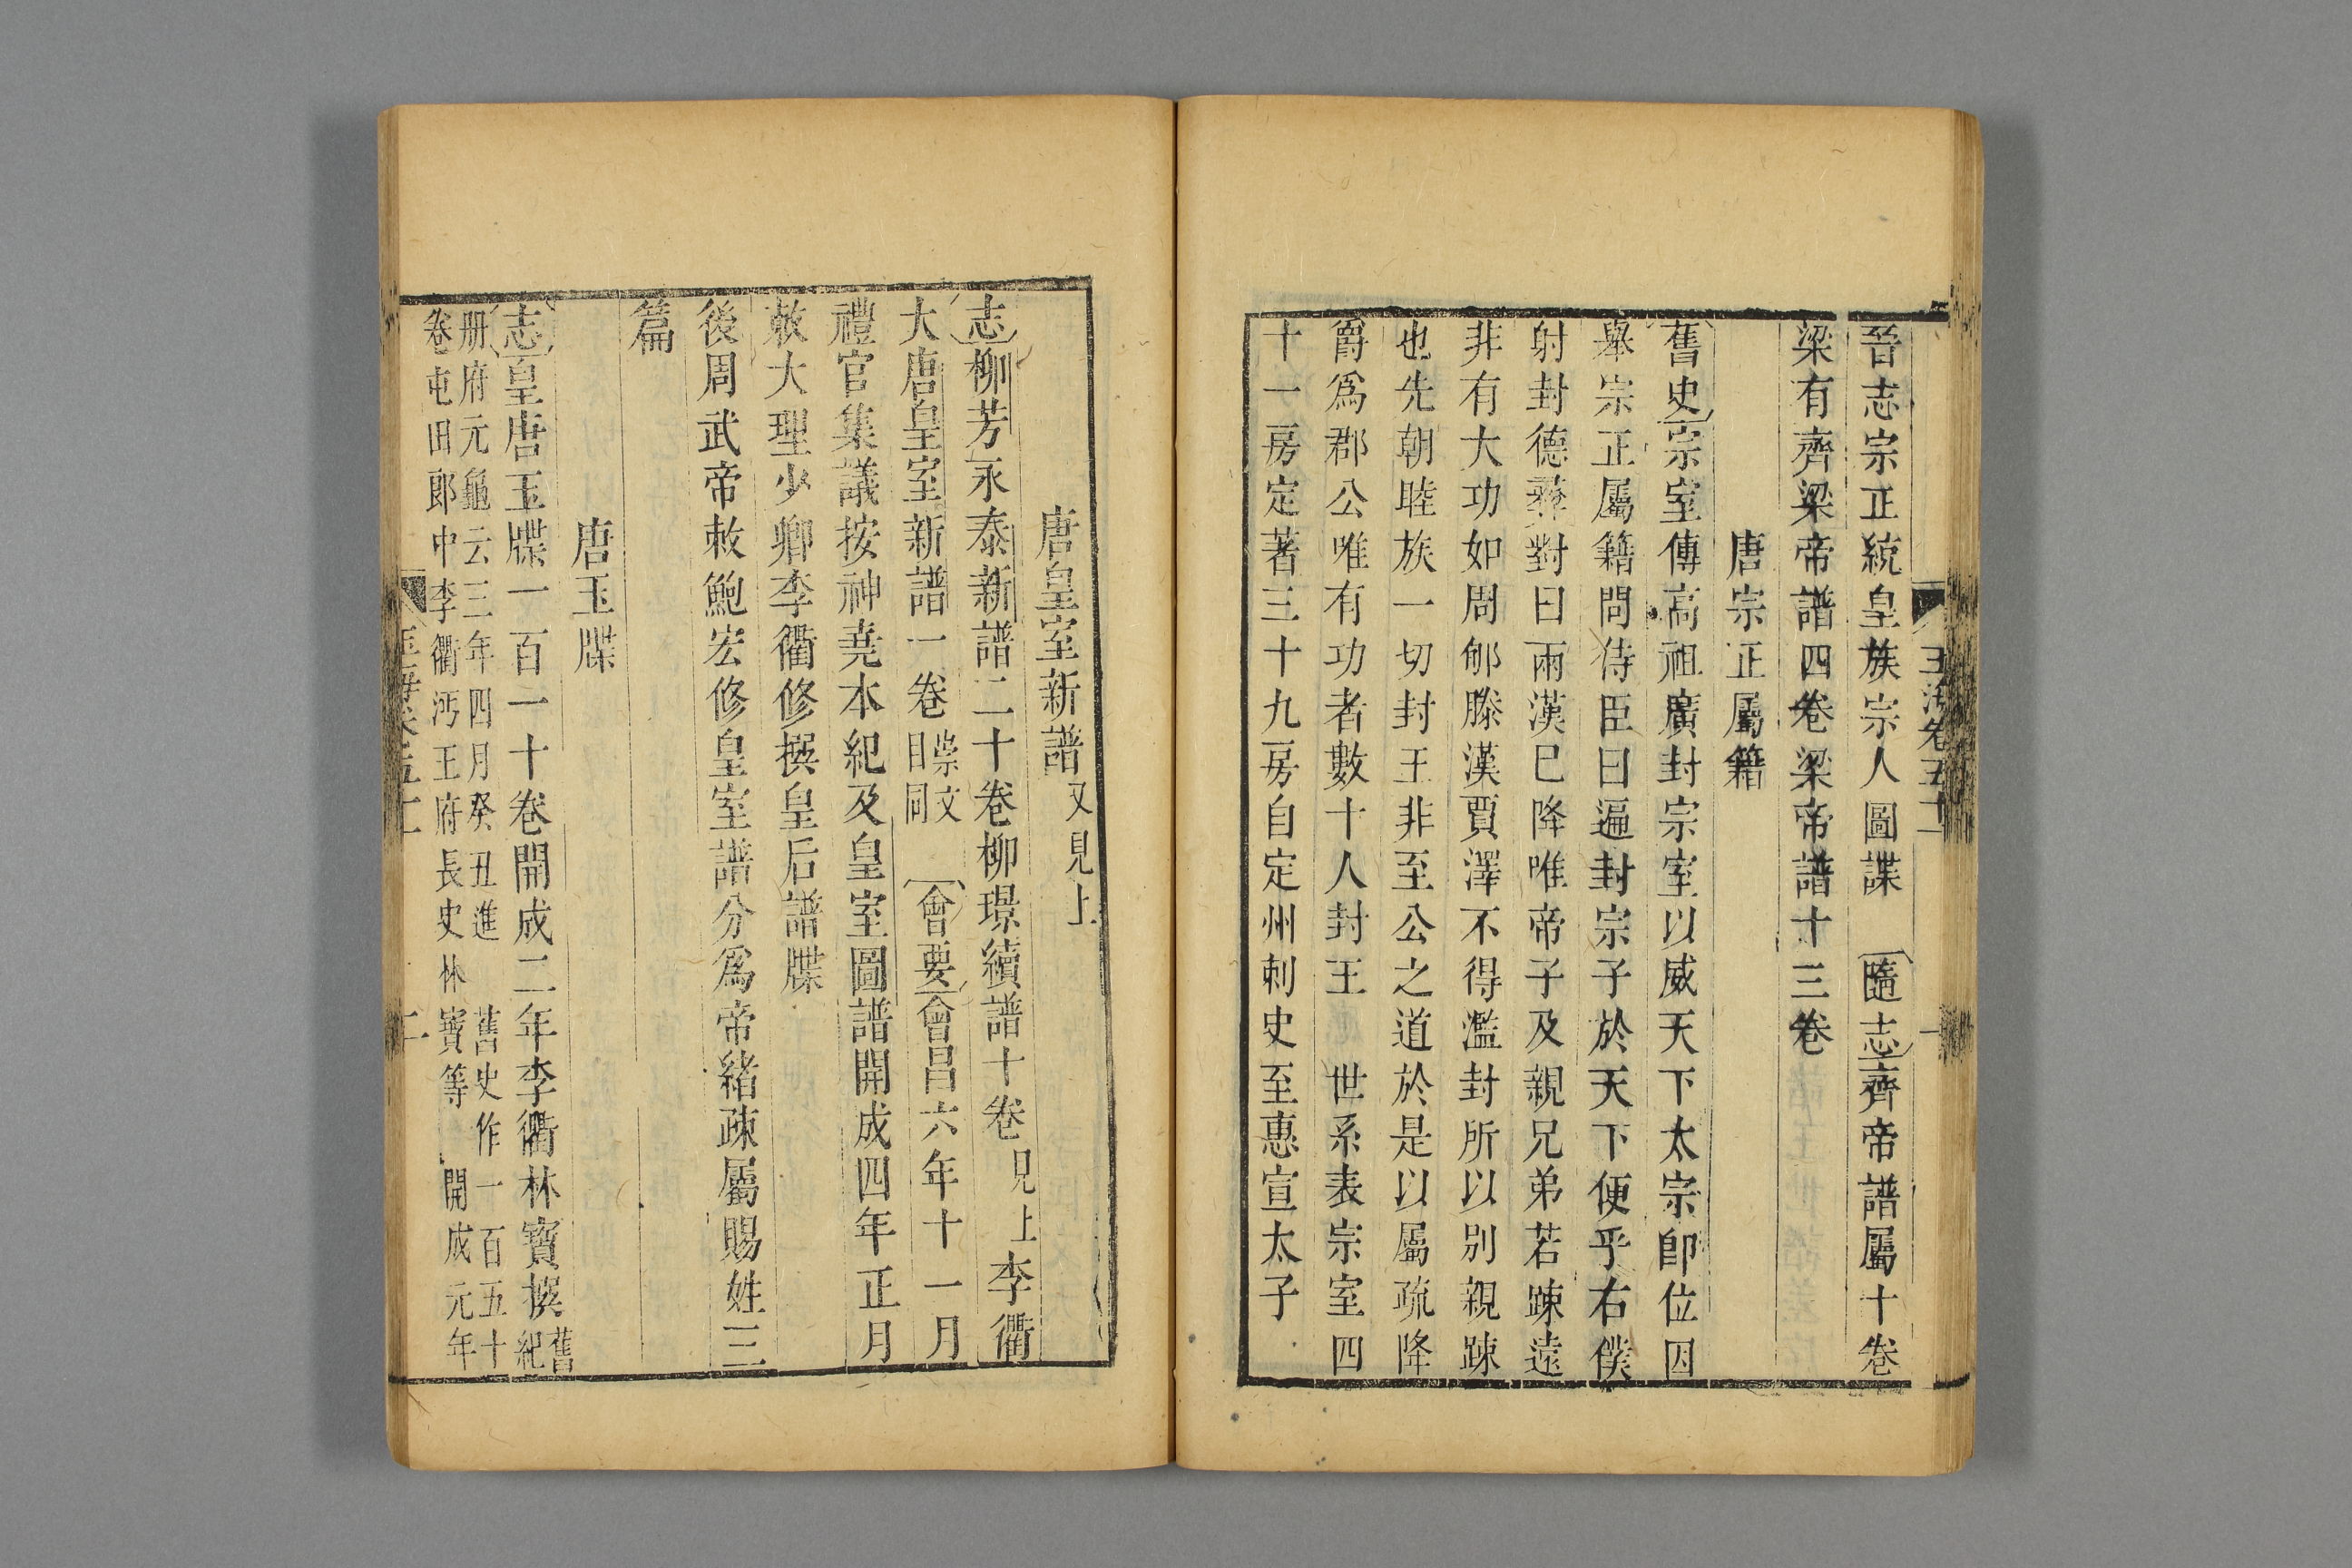 晉志宗正統皇族宗人圖諜　隨志齊帝譜屬十卷
梁有齊梁帝譜四卷梁帝譜十三卷
唐宗正屬籍
舊史宗室傳高祖廣封宗室以威天下太宗卽位因
舉宗正屬籍問侍臣曰遍封宗子於天下便乎右僕
射封德彝對曰兩漢巳降唯帝子及親兄弟若踈遠
非有大功如周郇滕漢賈澤不得濫封所以別親踈
也先朝睦族一切封王非至公之道於是以屬疏降
爵爲郡公唯有功者數十人封王　世系表宗室四
十一房定著三十九房自定州刺史至惠宣太子
唐皇室新譜又見上
志柳芳永泰新譜二十卷柳璟續譜十卷見上李衢
大唐皇室新譜一卷崇文目同　會要會昌六年十一月
禮官集議按神堯本紀及皇室圖譜開成四年正月
敕大理少卿李衢修撰皇后譜牒
後周武帝敕鮑宏修皇室譜分爲帝緒疎屬賜姓三
篇
唐玉牒
志皇唐玉牒一百一十卷開成二年李衢林寶撰舊紀
册府元龜云三年四月癸丑進　舊史作一百五十
卷屯田郎中李衢沔王府長史林寶等　開成元年